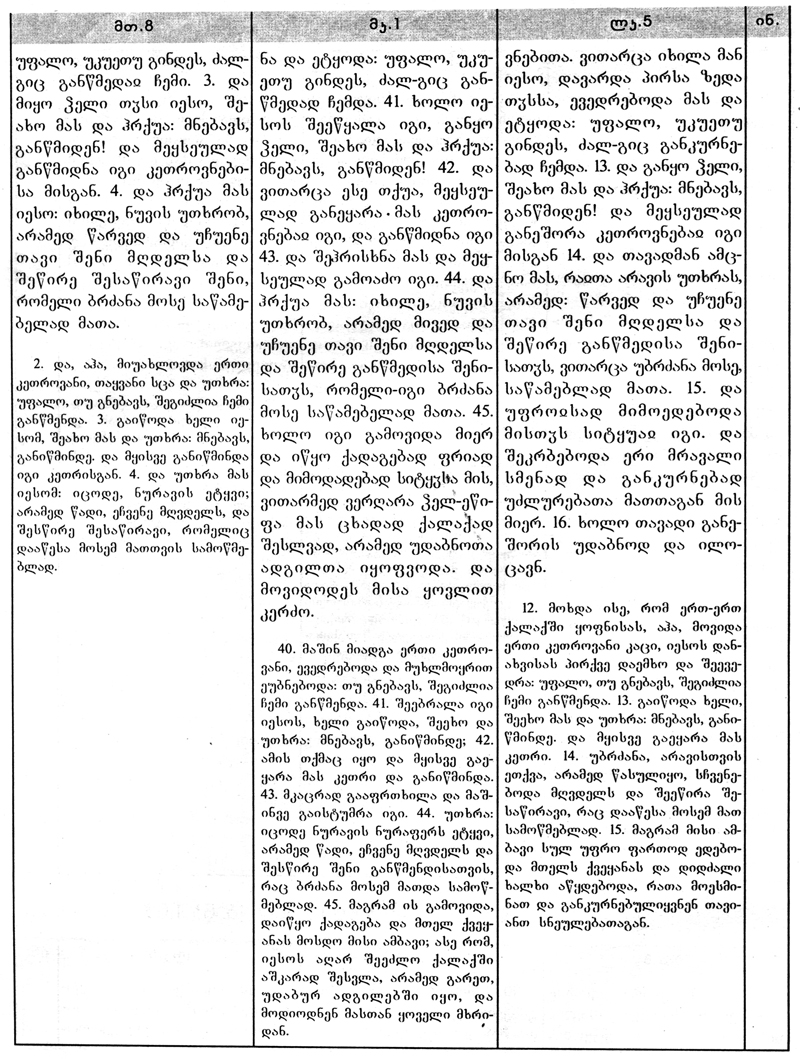 მთ.8
უფალო, უკუეთუ გინდეს, ძალ-
გიც განწმედაჲ ჩემი. 3. და
მიყო ჴელი თჳსი იესო, შე-
ახო მას და ჰრქუა: მნებავს,
განწმიდენ! და მეყსეულად
განწმიდნა იგი კეთროვნები-
სა მისგან. 4. და ჰრქუა მას
იესო: იხილე, ნუვის უთხრობ,
არამედ წარვედ და უჩუენე
თავი შენი მღდელსა და
შეწირე შესაწირავი შენი,
რომელი ბრძანა მოსე საწამე-
ბელად მათა.
2. და, აჰა, მიუახლოვდა ერთი
კეთროვანი, თაყვანი სცა და უთხრა:
უფალო, თუ გნებავს, შეგიძლია ჩემი
განწმენდა. 3. გაიწოდა ხელი იე-
სომ, შეახო მას და უთხრა: მნებავს,
განიწმინდე. და მყისვე განიწმინდა
იგი კეთრისგან. 4. და უთხრა მას
იესომ: იცოდე, ნურავის ეტყვი;
არამედ წადი, ეჩვენე მღვდელს, და
შესწირე შესაწირავი, რომელიც
დააწესა მოსემ მათთვის სამოწმე-
ბლად.
მკ.1
ნა და ეტყოდა: უფალო, უკუ-
ეთუ გინდეს, ძალ-გიც გან-
წმედად ჩემდა. 41. ხოლო იე-
სოს შეეწყალა იგი, განყო
ჴელი, შეახო მას და ჰრქუა:
მნებავს, განწმიდენ! 42. და
ვითარცა ესე თქუა, მეყსეუ-
ლად განეყარა მას კეთრო-
ვნებაჲ იგი, და განწმიდნა იგი
43. და შეჰრისხნა მას და მეყ-
სეულად გამოაძო იგი. 44. და
ჰრქუა მას: იხილე, ნუვის
უთხრობ, არამედ მივედ და
უჩუენე თავი შენი მღდელსა
და შეწირე განწმედისა შენი-
სათჳს, რომელი-იგი ბრძანა
მოსე საწამებელად მათა. 45.
ხოლო იგი გამოვიდა მიერ
და იწყო ქადაგებად ფრიად
და მიმოდადებად სიტყჳსა მის,
ვითარმედ ვერღარა ჴელ-ეწი-
ფა მას ცხადად ქალაქად
შესლვად, არამედ უდაბნოთა
ადგილთა იყოფვოდა. და
მოვიდოდეს მისა ყოვლით
კერძო.
40. მაშინ მიადგა ერთი კეთრო-
ვანი, ევედრებოდა და მუხლმოყრით
ეუბნებოდა: თუ გნებავს, შეგიძლია
ჩემი განწმენდა. 41. შეებრალა იგი
იესოს, ხელი გაიწოდა, შეეხო და
უთხრა: მნებავს, განიწმინდე; 42.
ამის თქმაც იყო და მყისვე გაე-
ყარა მას კეთრი და განიწმინდა.
43. მკაცრად გააფრთხილა და მაშ-
ინვე გაისტუმრა იგი. 44. უთხრა:
იცოდე ნურავის ნურაფერს ეტყვი,
არამედ წადი, ეჩვენე მღვდელს და
შესწირე შენი განწმენდისათვის,
რაც ბრძანა მოსემ მათდა სამოწ-
მებლად. 45. მაგრამ ის გამოვიდა,
დაიწყო ქადაგება და მთელ ქვეყ-
ანას მოსდო მისი ამბავი; ასე რომ,
იესოს აღარ შეეძლო ქალაქში
აშკარად შესვლა, არამედ გარეთ,
უდაბურ ადგილებში იყო, და
მოდიოდნენ მასთან ყოველი მხრი-
დან.
ლკ.5
ვნებითა. ვითარცა იხილა მან
იესო, დავარდა პირსა ზედა
თჳსსა, ევედრებოდა მას და
ეტყოდა: უფალო, უკუეთუ
გინდეს, ძალ-გიც განკურნე-
ბად ჩემდა. 13. და განყო ჴელი,
შეახო მას და ჰრქუა: მნებავს,
განწმიდენ! და მეყსეულად
განეშორა კეთროვნებაჲ იგი
მისგან 14. და თავადმან ამც-
ნო მას, რაჲთა არავის უთხრას,
არამედ: წარვედ და უჩუენე
თავი შენი მღდელსა და
შეწირე განწმედისა შენი-
სათჳს, ვითარცა უბრძანა მოსე,
საწამებლად მათა. 15. და
უფროჲსად მიმოედებოდა
მისთჳს სიტყუაჲ იგი. და
შეკრბებოდა ერი მრავალი
სმენად და განკურნებად
უძლურებათა მათთაგან მის
მიერ. 16. ხოლო თავადი განე-
შორის უდაბნოდ და ილო-
ცავნ.
12. მოხდა ისე, რომ ერთ-ერთ
ქალაქში ყოფნისას, აჰა, მოვიდა
ერთი კეთროვანი კაცი, იესოს დან-
ახვისას პირქვე დაემხო და შეევე-
დრა: უფალო, თუ გნებავს, შეგიძლია
ჩემი განწმენდა. 13. გაიწოდა ხელი,
შეეხო მას და უთხრა: მნებავს, განი-
წმინდე. და მყისვე გაეყარა მას
კეთრი. 14. უბრძანა, არავისთვის
ეთქვა, არამედ წასულიყო, სჩვენე-
ბოდა მღვდელს და შეეწირა შე-
საწირავი, რაც დააწესა მოსემ მათ
სამოწმებლად. 15. მაგრამ მისი ამ-
ბავი სულ უფრო ფართოდ ედებო-
და მთელს ქვეყანას და დიდძალი
ხალხი აწყდებოდა, რათა მოესმი-
ნათ და განკურნებულიყვნენ თავი-
ანთ სნეულებათაგან.
ინ.